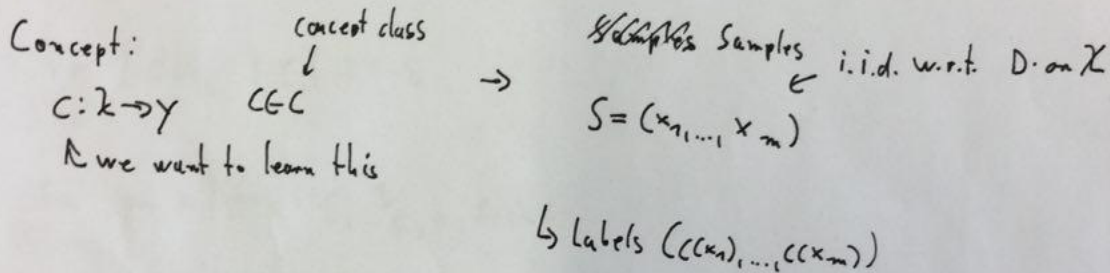 Concept:
concept class
↓
c: X → Y c ∈ C
↑ we want to learn this
→
Samples
i.i.d. w.r.t. D on X
S = (x₁, ..., xₘ)
↳ Labels (c(x₁), ..., c(xₘ))